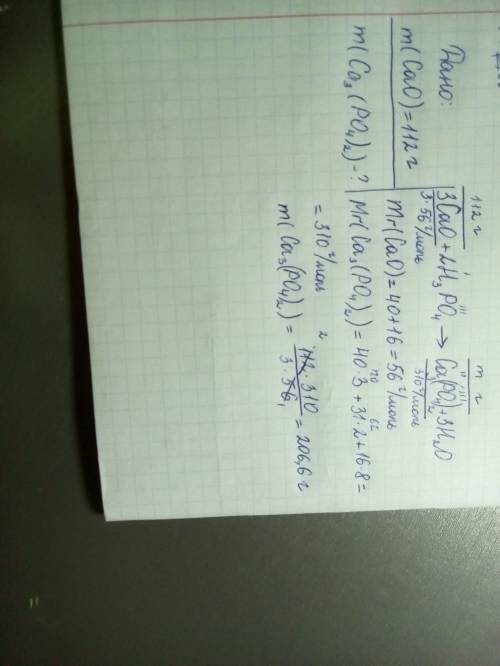 Дано:
m(CaO)=112 г
m(Ca₃(PO₄)₂)-?
112 г m г
3CaO + 2H₃PO₄ → Ca₃(PO₄)₂+3H₂O
3·56 г/моль 310 г/моль
Mr(CaO)=40+16=56 г/моль
Mr(Ca₃(PO₄)₂)=40·3+31·2+16·8=
120 62
=310 г/моль
m(Ca₃(PO₄)₂) = 112·310 / 3·56 = 206,6 г
2
1